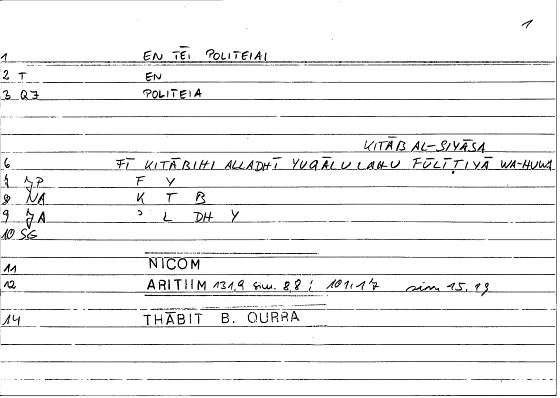 1
1 EN TĒI POLITEIAI
2 T EN
3 Q7 POLITEIA
KITĀB AL-SIYĀSA
6 FĪ KITĀBIHI ALLADHĪ YUQĀLU LAHU FŪLĪṬIYĀ WA-HUWA
7 JP F Y
8 NA K T B
9 JA ʾ L DH Y
10 SG
11 NICOM
12 ARITIIM 131,9 sim. 8,8; 101,17 sim 15,19
14 THĀBIT B. QURRA